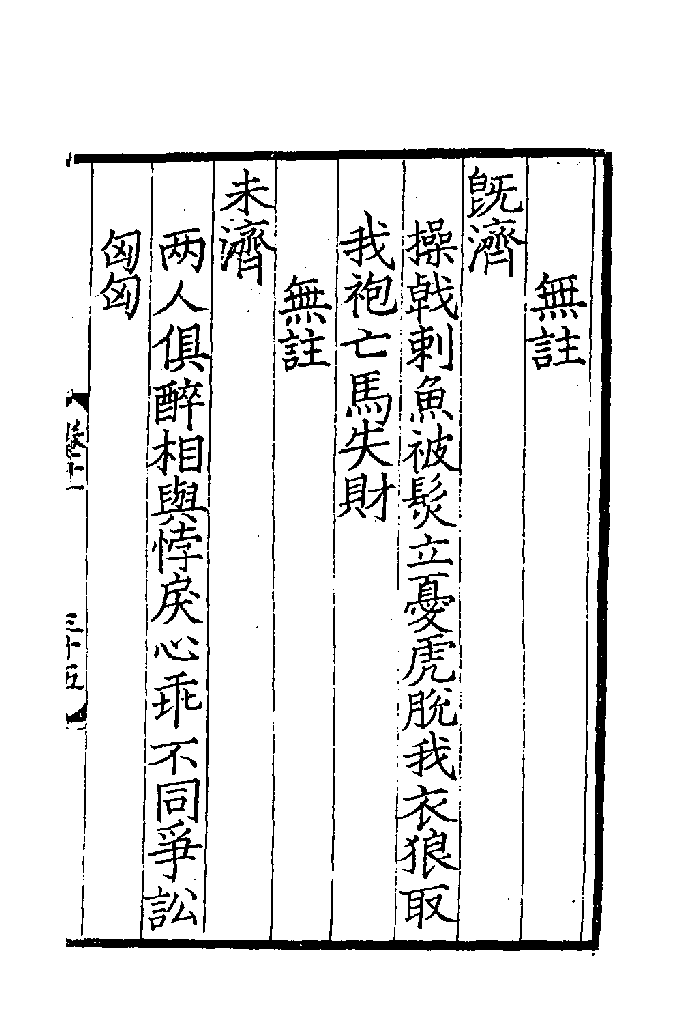 無註
旣濟
操戟刺魚被髮立憂虎脫我衣狼取
我袍亡馬失財
無註
未濟
两人俱醉相與悖戾心乖不同爭訟
匈匈
卷十一
三十五